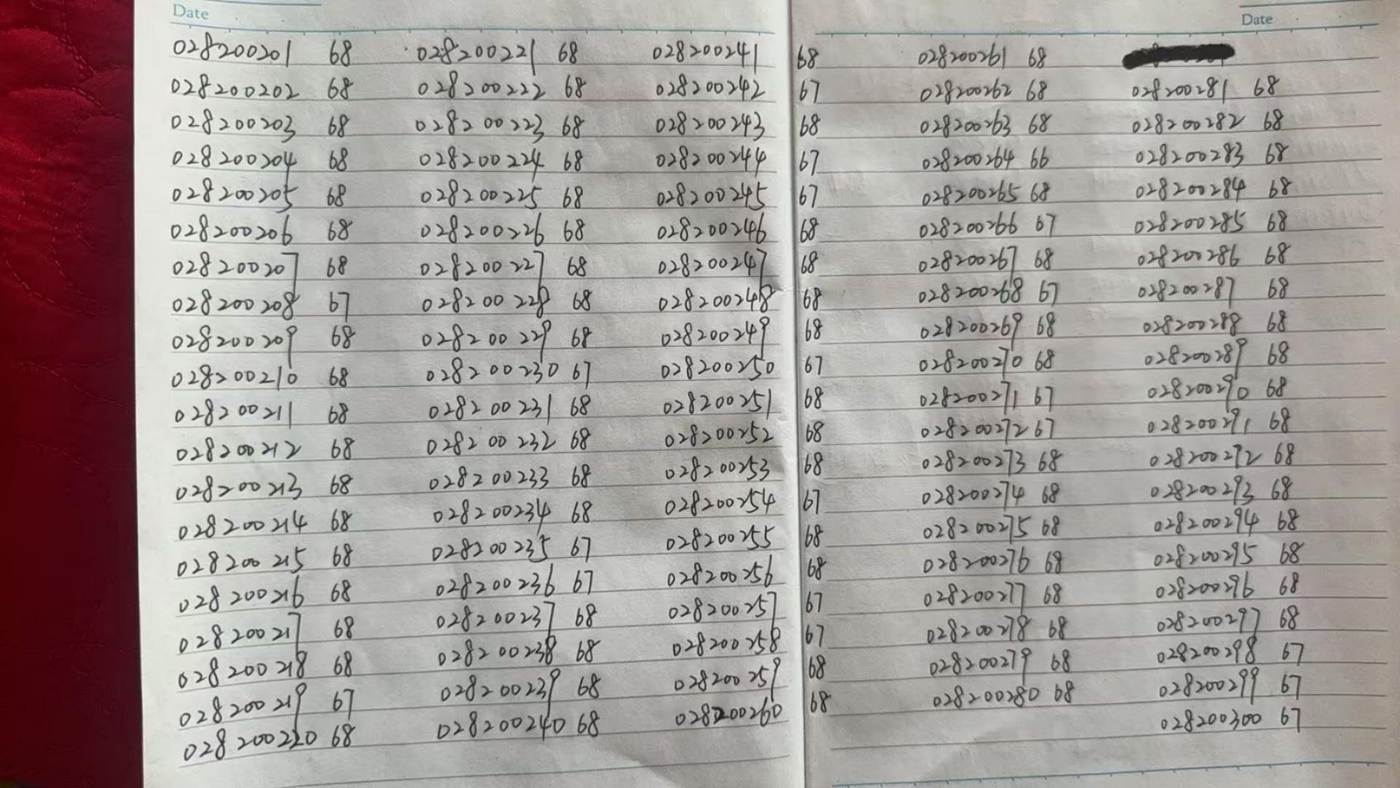 Date
028200201 68
028200202 68
028200203 68
028200204 68
028200205 68
028200206 68
028200207 68
028200208 67
028200209 68
028200210 68
028200211 68
028200212 68
028200213 68
028200214 68
028200215 68
028200216 68
028200217 68
028200218 68
028200219 67
028200220 68
028200221 68
028200222 68
028200223 68
028200224 68
028200225 68
028200226 68
028200227 68
028200228 68
028200229 68
028200230 67
028200231 68
028200232 68
028200233 68
028200234 68
028200235 67
028200236 67
028200237 68
028200238 68
028200239 68
028200240 68
028200241 68
028200242 67
028200243 68
028200244 67
028200245 67
028200246 68
028200247 68
028200248 68
028200249 68
028200250 67
028200251 68
028200252 68
028200253 68
028200254 67
028200255 68
028200256 68
028200257 67
028200258 67
028200259 68
028200260 68
Date
028200261 68
028200262 68
028200263 68
028200264 66
028200265 68
028200266 67
028200267 68
028200268 67
028200269 68
028200270 68
028200271 67
028200272 67
028200273 68
028200274 68
028200275 68
028200276 68
028200277 68
028200278 68
028200279 68
028200280 68
028200281 68
028200282 68
028200283 68
028200284 68
028200285 68
028200286 68
028200287 68
028200288 68
028200289 68
028200290 68
028200291 68
028200292 68
028200293 68
028200294 68
028200295 68
028200296 68
028200297 68
028200298 67
028200299 67
028200300 67